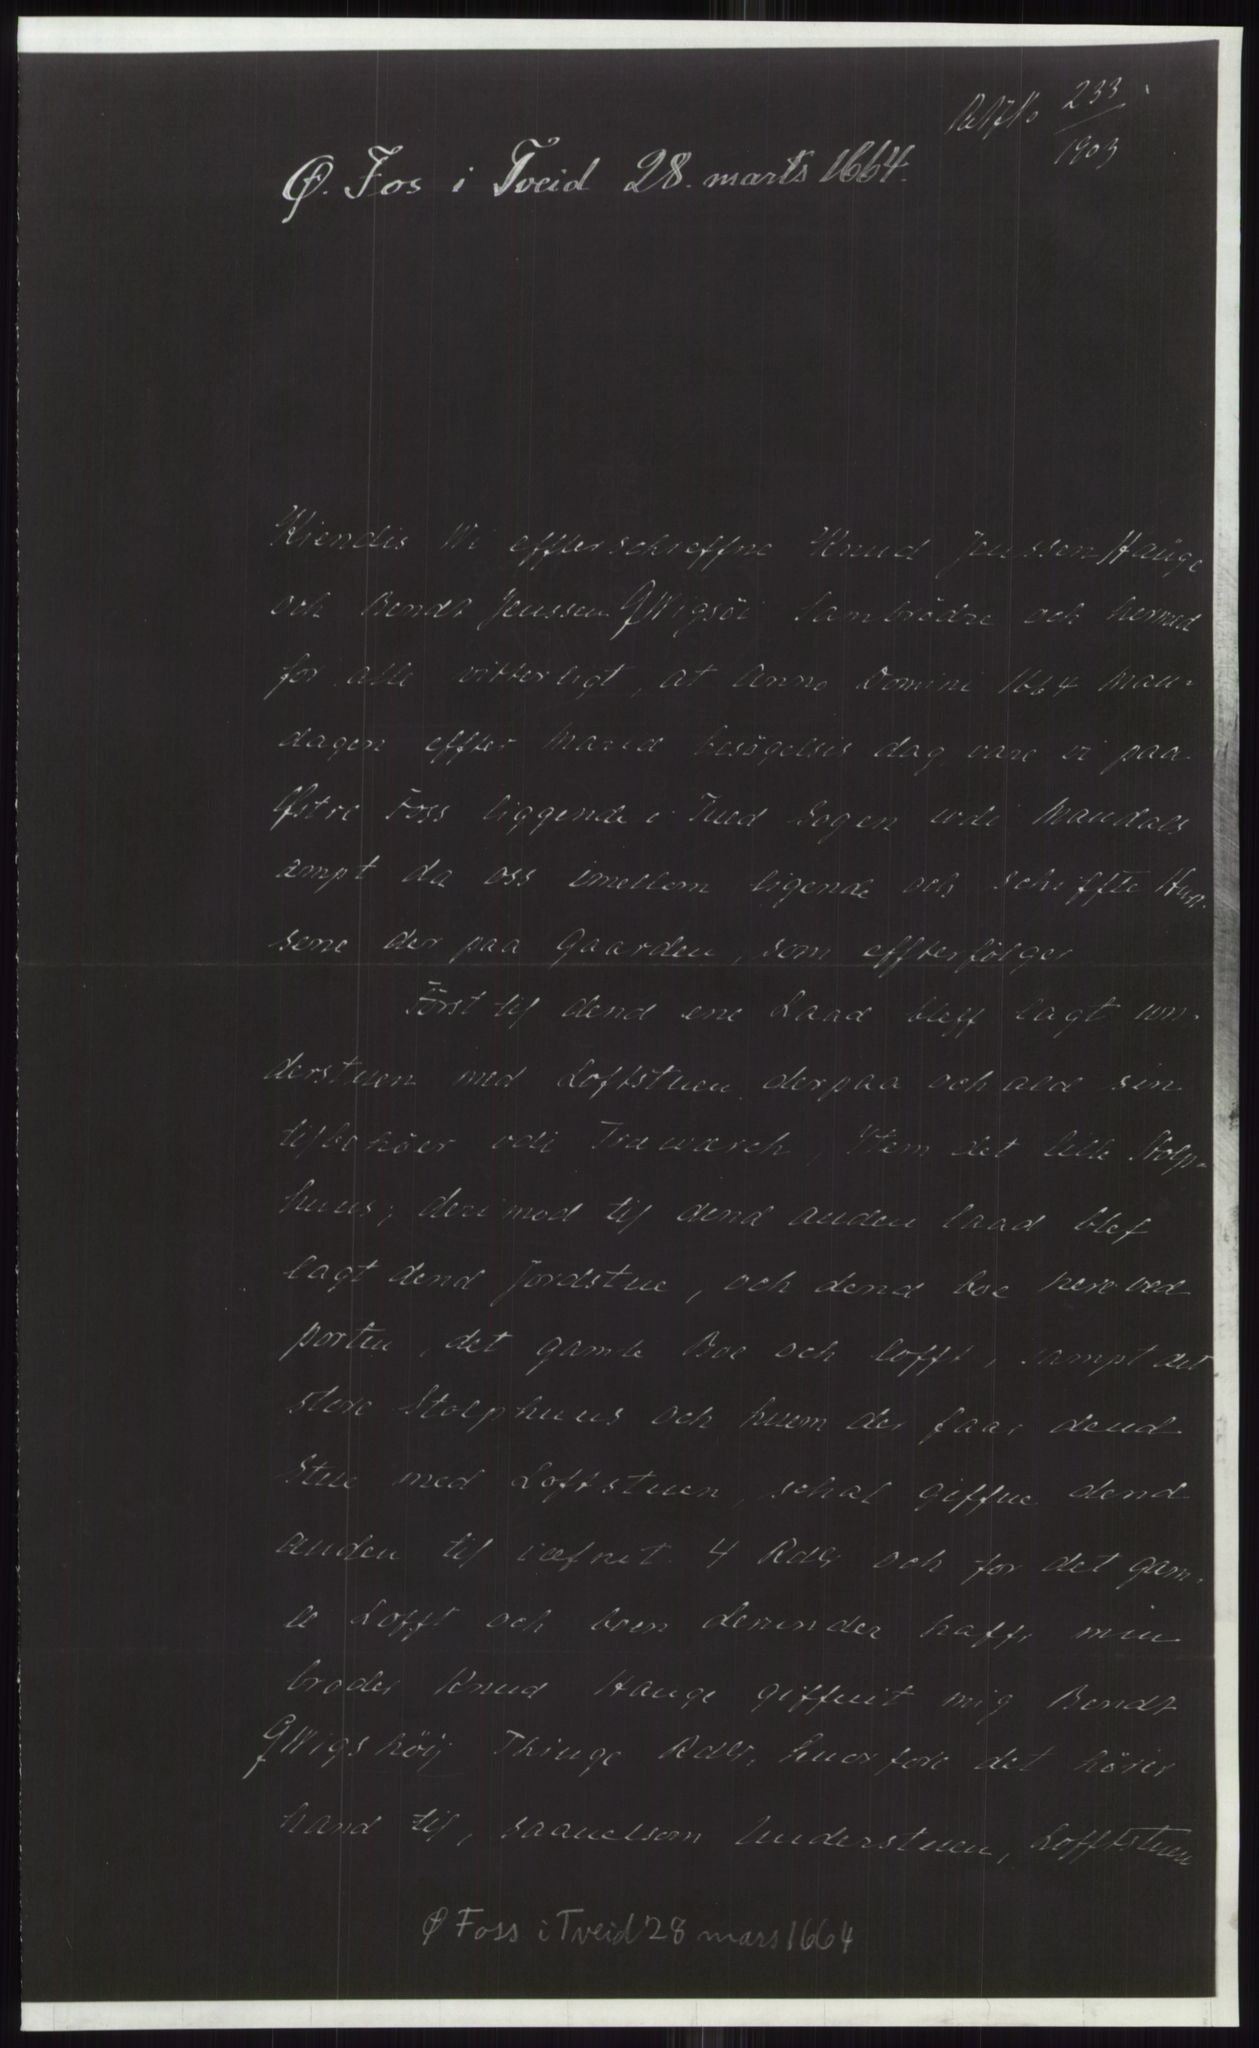 233
1903
Ø. Fos i Tveid 28. marts 1664.
Kiendis Wi effterschreffne Knud Jenssen Hauge
och Bendt Jenssen GWigsöi Sambrödre och hermed
for alle vitterligt, at Anno Domini 1664 Man-
dagen effter Mariæ besögelsis dag vare vi paa
Østre Foss liggende i Tued Sogen udi Mandals
ampt da oss imellom ligende och schiffte Huu-
sene der paa Gaarden, som effterfölger
Först till dend ene Laad bleff lagt un-
derstuen med Loftstuen derpaa och alld sin
tilbehöer udi Træwærch, Item det lille Stolp-
huus; derimod till dend anden laad blef
lagt dend Jordstue, och dend boe nere ved
porten, det gamle Boe och lofft, sampt det
störe Stolphuus och huem der faar dend
Stue med Loftstuen, schal giffue dend
anden till iefnet 4 Rdlr och for det gam-
le Lofft och boen derunder haffr min
broder Knud Hauge giffuit mig Bendt
GWigshöij Thiuge Rdlr, huorfore det hörer
hand till, saauelsom Understuen, Lofftstuen
Ø Foss i Tveid 28 mars 1664